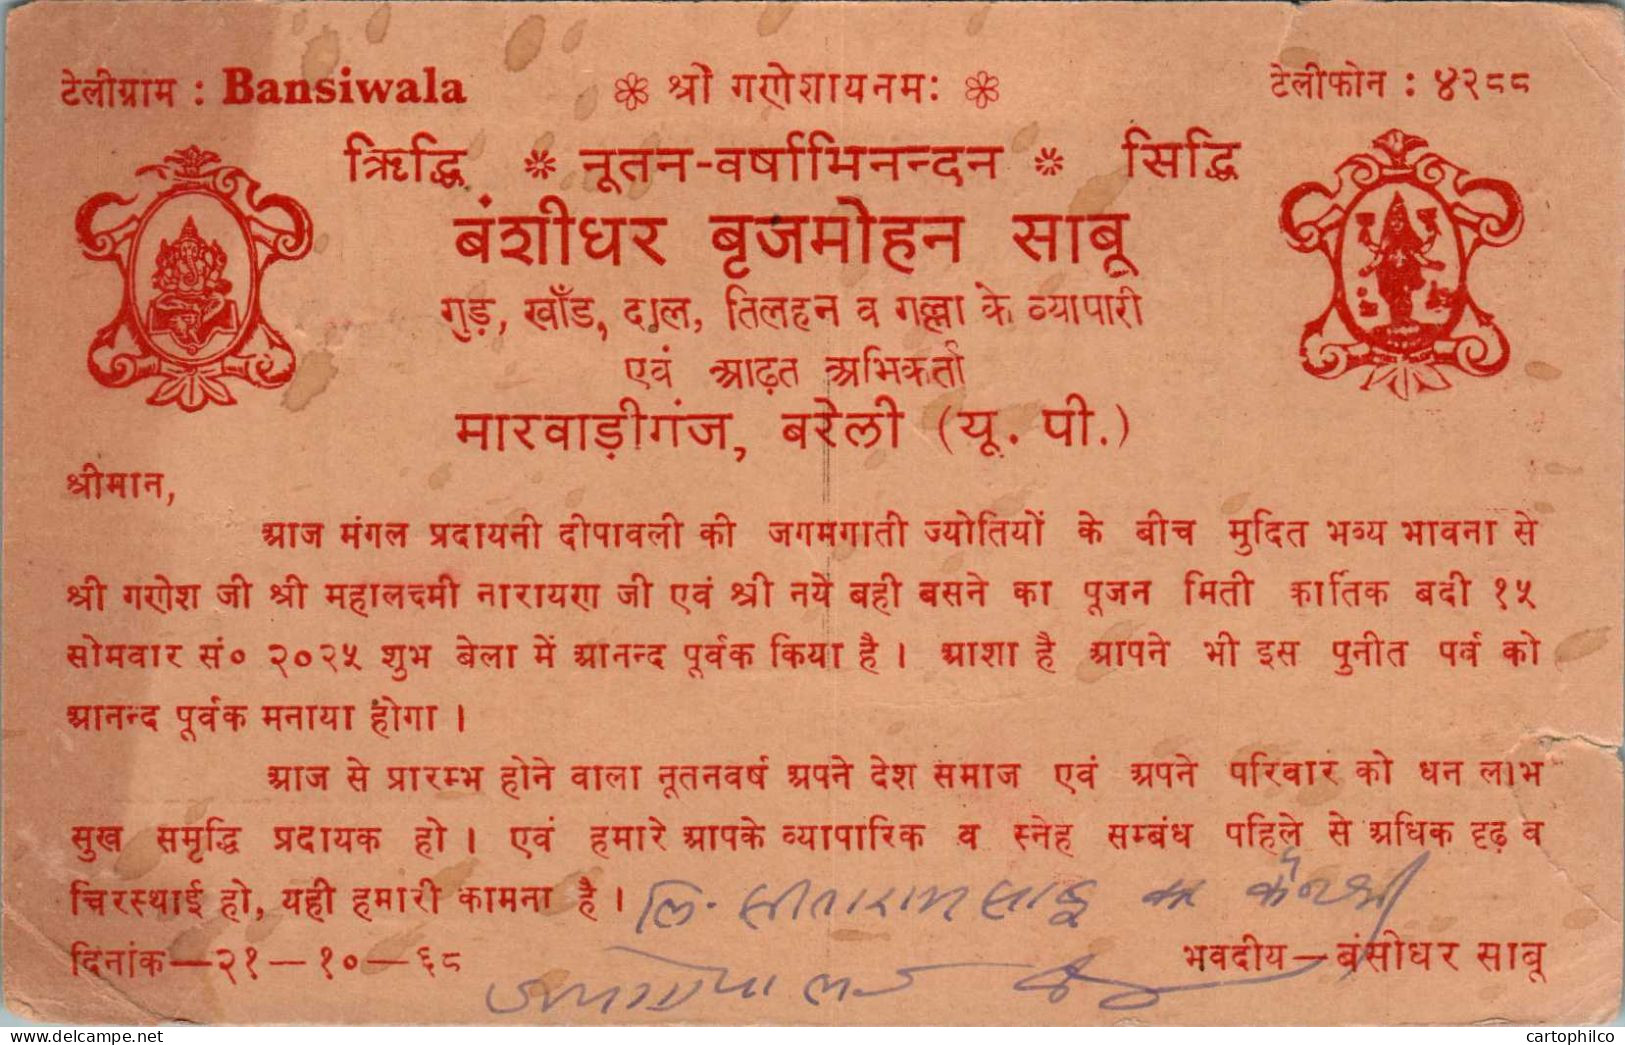 टेलीग्राम : Bansiwala ❀ श्री गणेशायनमः ❀ टेलीफोन : ४२८८
ऋिद्धि * नूतन-वर्षाभिनन्दन * सिद्धि
बंशीधर बृजमोहन साबू
गुड़, खाँड, दाल, तिलहन व गल्ला के व्यापारी
एवं आढ़त अभिकर्ता
मारवाड़ीगंज, बरेली (यू. पी.)
श्रीमान,
आज मंगल प्रदायनी दीपावली की जगमगाती ज्योतियों के बीच मुदित भव्य भावना से
श्री गणेश जी श्री महालक्ष्मी नारायण जी एवं श्री नये बही बसने का पूजन मिती कार्तिक बदी १५
सोमवार सं० २०२५ शुभ बेला में आनन्द पूर्वक किया है । आशा है आपने भी इस पुनीत पर्व को
आनन्द पूर्वक मनाया होगा ।
आज से प्रारम्भ होने वाला नूतनवर्ष अपने देश समाज एवं अपने परिवार को धन लाभ
सुख समृद्धि प्रदायक हो । एवं हमारे आपके व्यापारिक व स्नेह सम्बंध पहिले से अधिक दृढ़ व
चिरस्थाई हो, यही हमारी कामना है । लि. सीताराम साबू का
दिनांक—२१—१०—६८ भवदीय—बंसीधर साबू
cartophilco